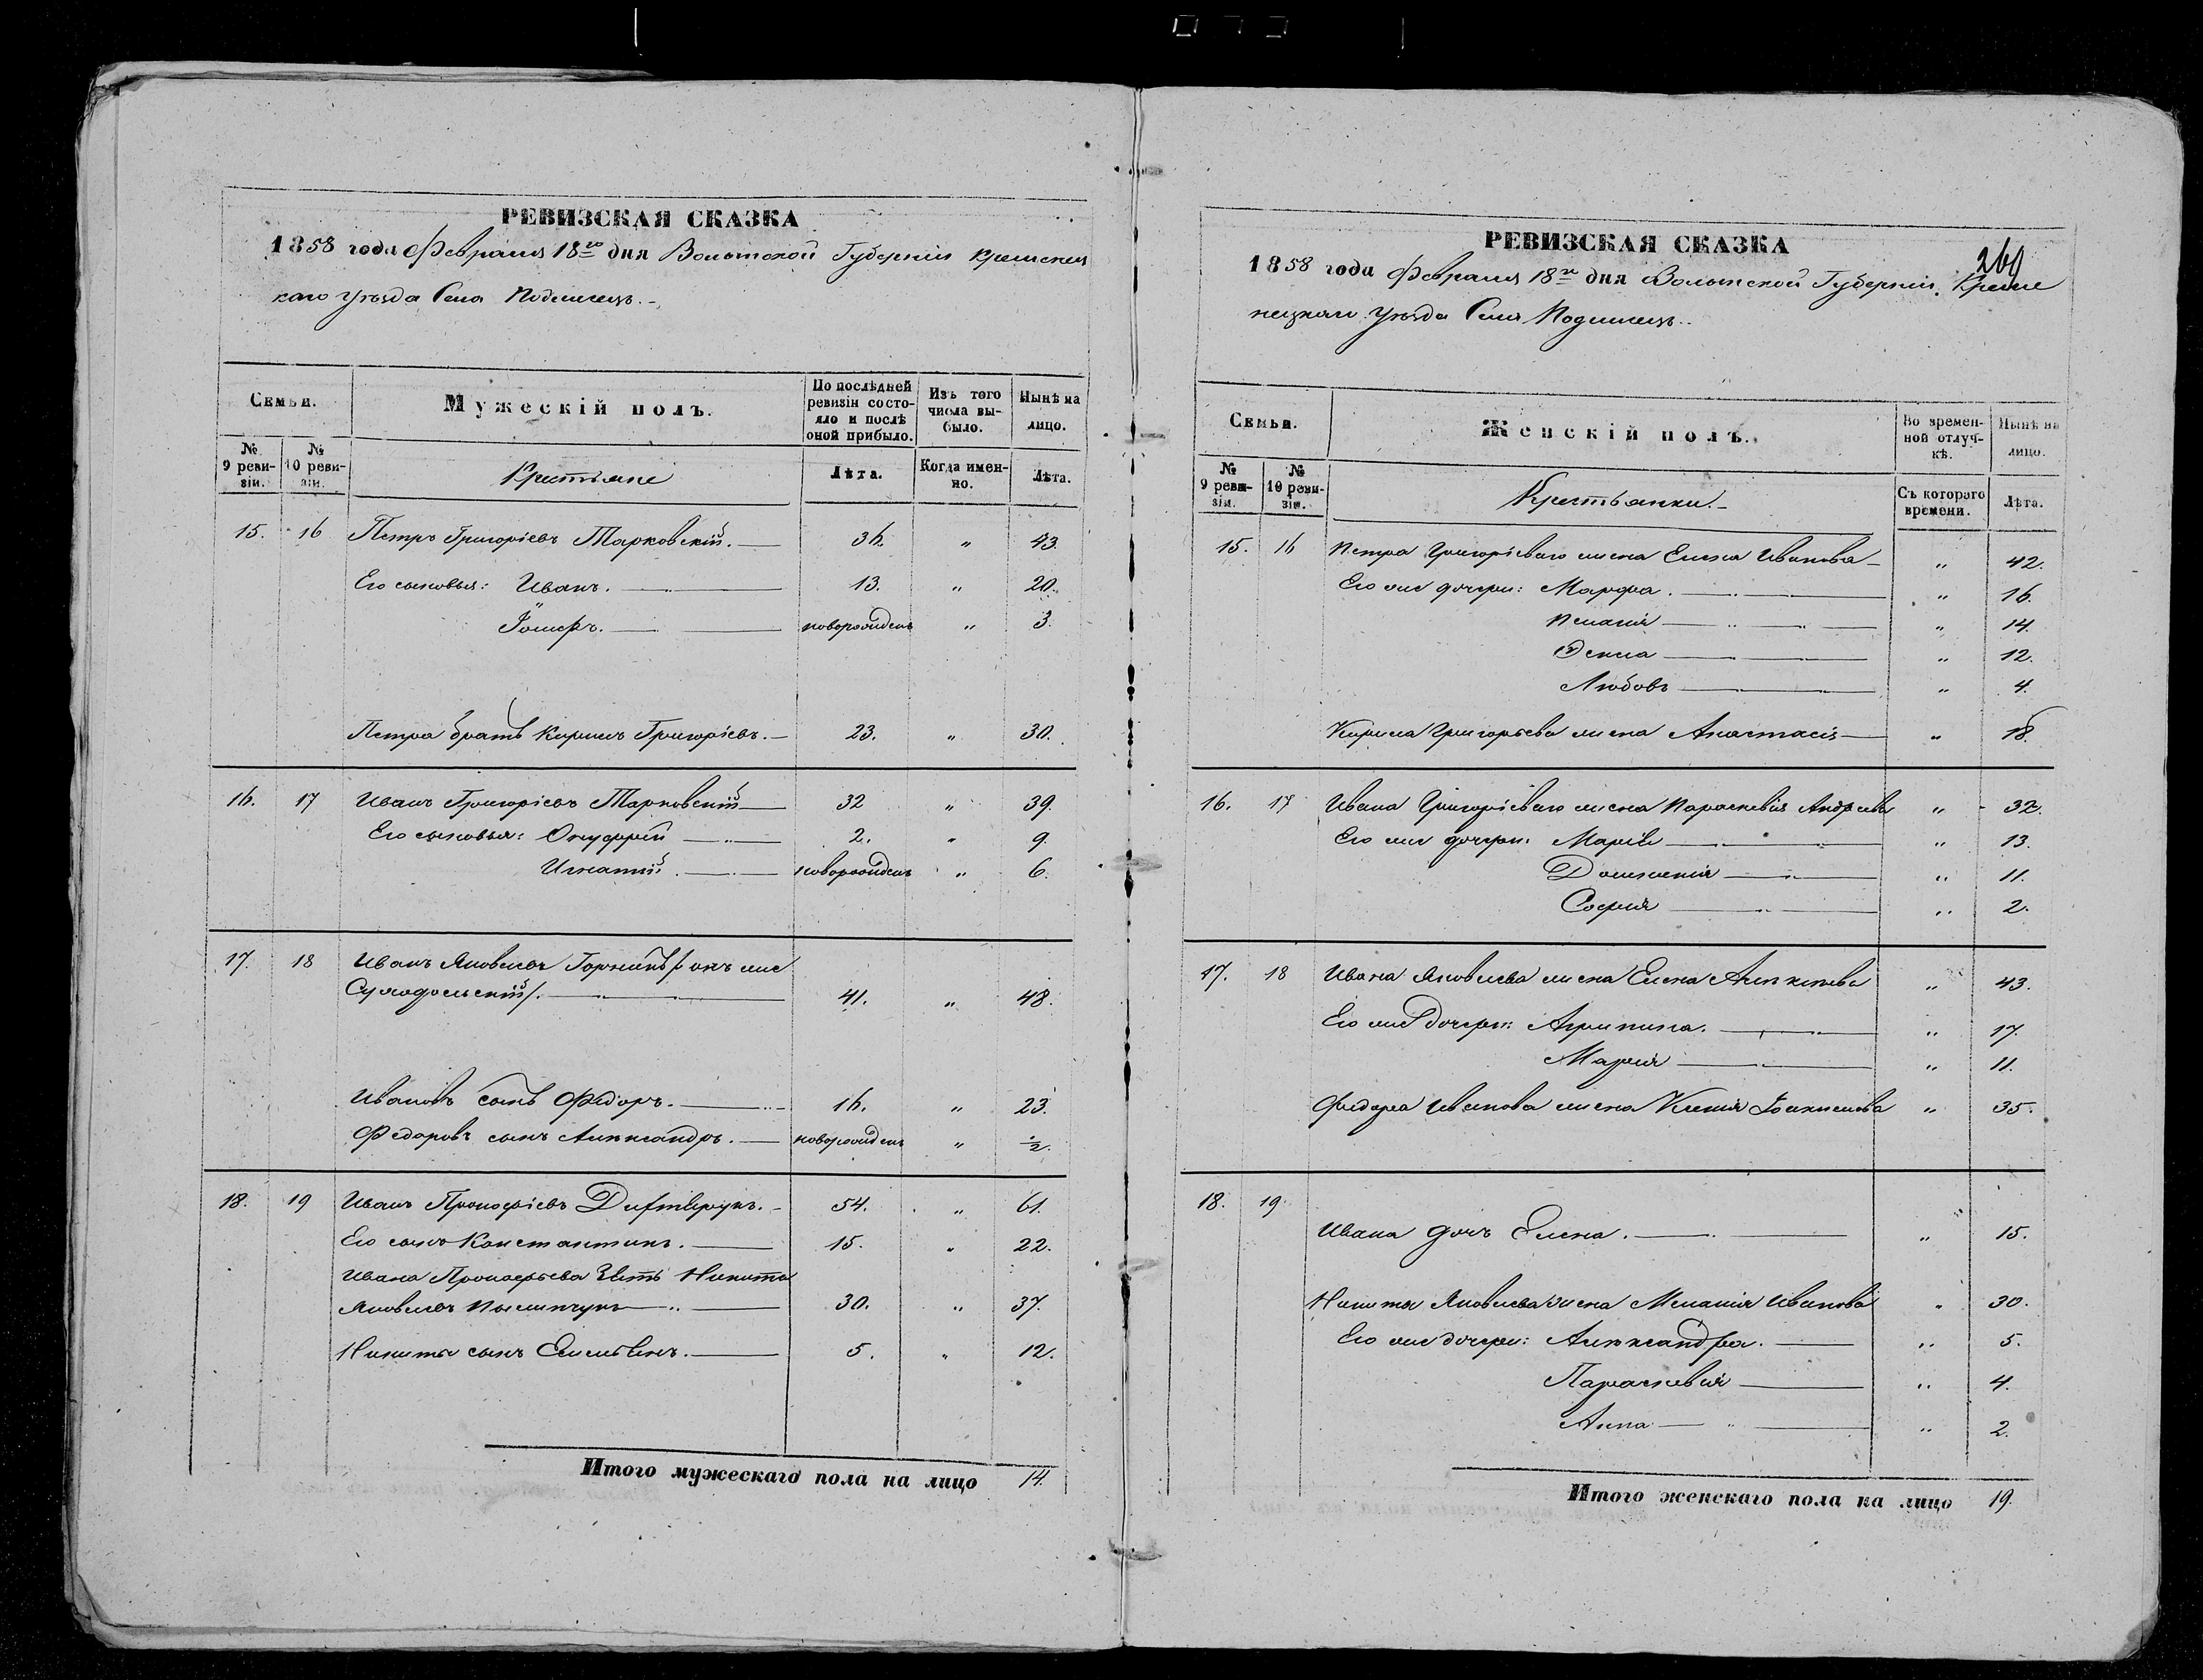 РЕВИЗСКАЯ СКАЗКА
1858 года Февраля 18го дня Волынской Губерніи Кременец
каго Уѣзда Села
Семьи.
Мужескій полъ.
По послѣдней ревизіи состояло и послѣ оной прибыло.
Изъ того числа выбыло.
Нынѣ на лицо.
№ 9 ревизіи.
№ 10 ревизіи.
Крестьяне
Лѣта.
Когда именно.
Лѣта.
15. 16 Петръ Григоріевъ Марковскій. 36. „ 43.
Его сыновья: Иванъ. 13. „ 20.
Іосифъ. новорожденъ „ 3.
Петра братъ Кирилъ Григоріевъ. 23. „ 30.
16. 17 Иванъ Григоріевъ Марковскій 32 „ 39.
Его сыновья: Онуфрій 2. „ 9.
Игнатій. новорожденъ „ 6.
17. 18 Иванъ Яковлевъ онъ же
41. „ 48.
Ивановъ сынъ Федоръ. 16. „ 23.
Федоровъ сынъ Александръ. новорожденъ „ ½.
18. 19 Иванъ Прокофіевъ 54. „ 61.
Его сынъ Константинъ. 15. „ 22.
Ивана Прокофьева Зять Никита
Яковлевъ 30. „ 37.
Никиты сынъ 5. „ 12.
Итого мужескаго пола на лицо 14.
РЕВИЗСКАЯ СКАЗКА
269
1858 года Февраля 18го дня Волынской Губерніи, Креме
нецкаго Уѣзда Села
Семьи.
Женскій полъ.
Во временной отлучкѣ.
Нынѣ на лицо.
№ 9 ревизіи.
№ 10 ревизіи.
Крестьянки.
Съ котораго времени.
Лѣта.
15. 16 Петра Григоріеваго жена Елена Иванова „ 42.
Его же дочери: Марфа. „ 16.
„ 14.
Фекла „ 12.
Любовь „ 4.
Кирила Григорьева жена Анастасія „ 18.
16. 17 Ивана Григоріеваго жена Параскевія Андреева „ 32.
Его же дочери: Марія „ 13.
Домникія „ 11.
Софія „ 2.
17. 18 Ивана Яковлева жена Елена Алексѣева „ 43.
Его же дочери: Агрипина. „ 17.
Марія „ 11.
Федора Иванова жена Ксенія „ 35.
18. 19.
Ивана дочь Елена. „ 15.
Никиты Яковлева жена Меланія Иванова „ 30.
Его же дочери: Александра. „ 5.
Параскевія „ 4.
Анна „ 2.
Итого женскаго пола на лицо 19.